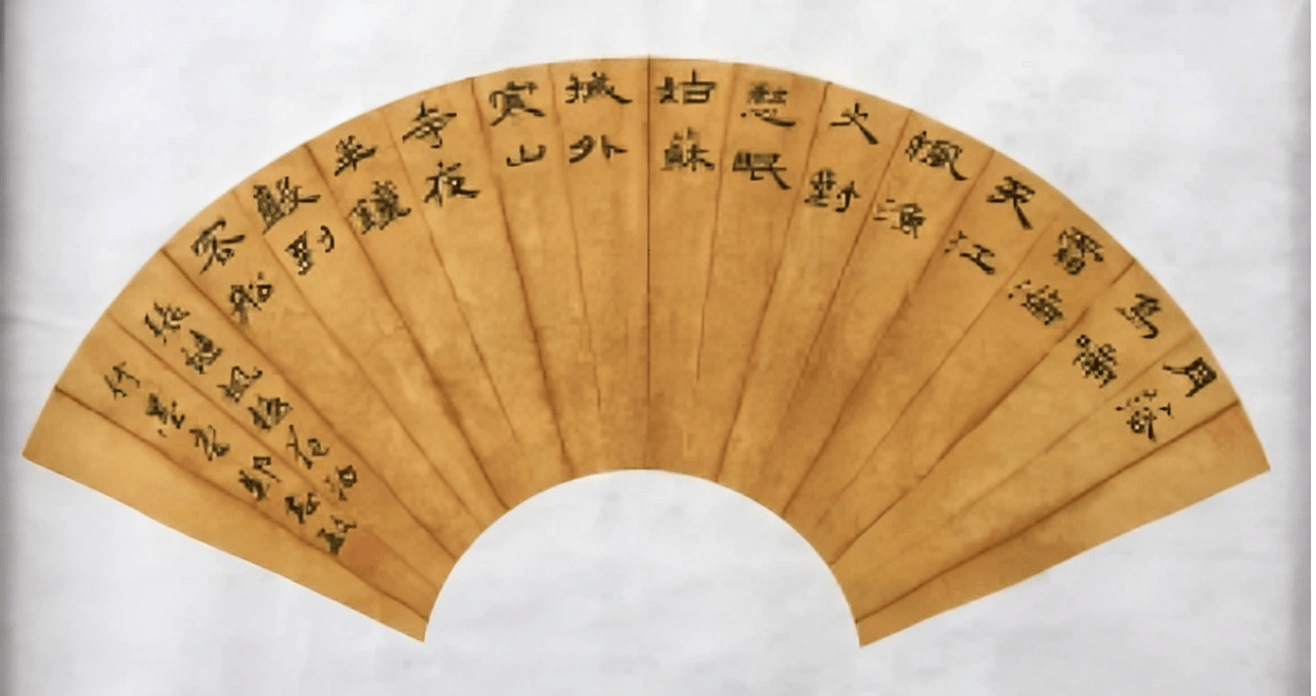 月落
烏啼
霜滿
天江
楓漁
火對
愁眠
姑蘇
城外
寒山
寺夜
半鐘
聲到
客船
張繼楓橋夜泊
鄭